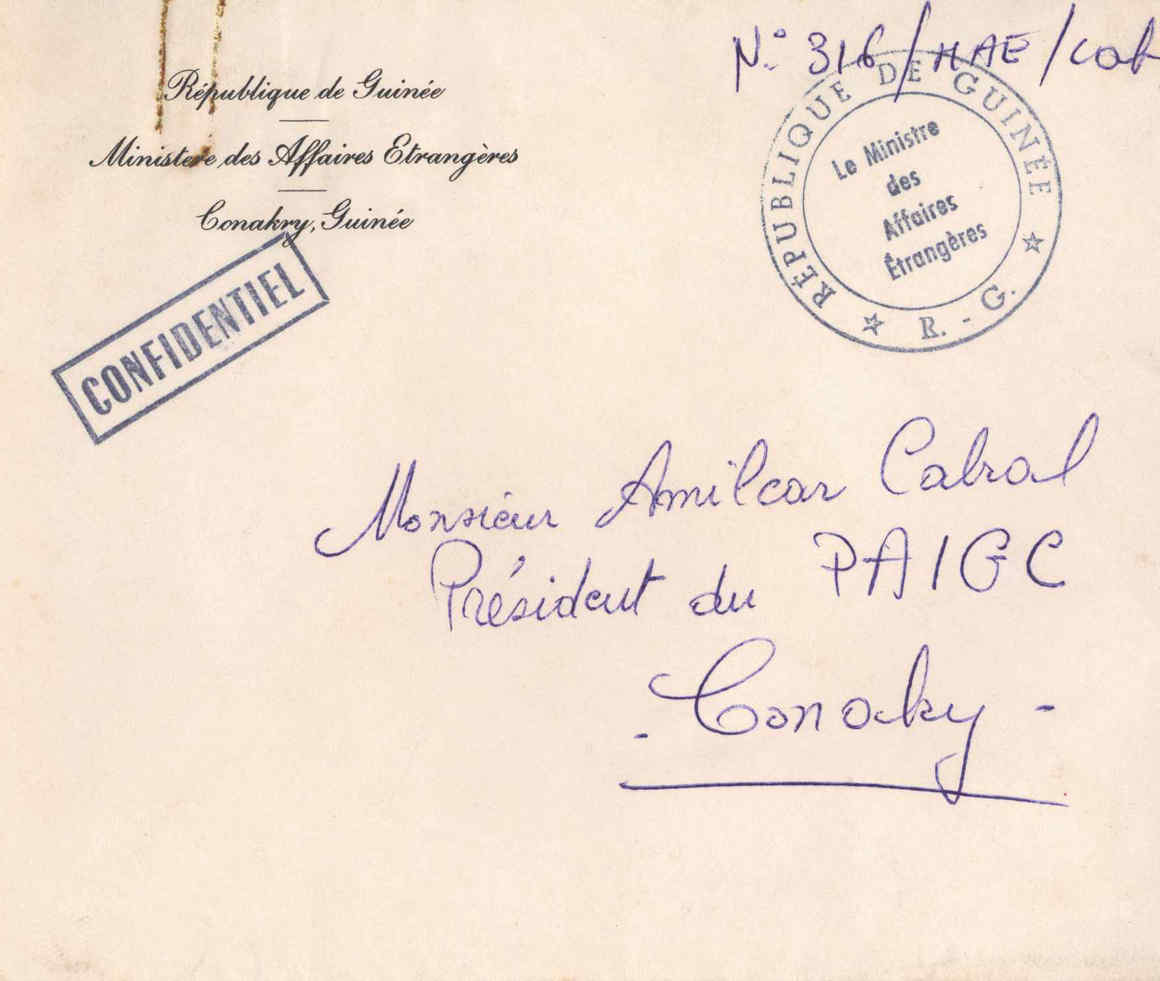 N° 316/MAE/Cab
République de Guinée
Ministère des Affaires Etrangères
Conakry, Guinée
CONFIDENTIEL
RÉPUBLIQUE DE GUINÉE
R. - G.
Le Ministre
des
Affaires
Étrangères
Monsieur Amilcar Cabral
Président du PAIGC
- Conakry -